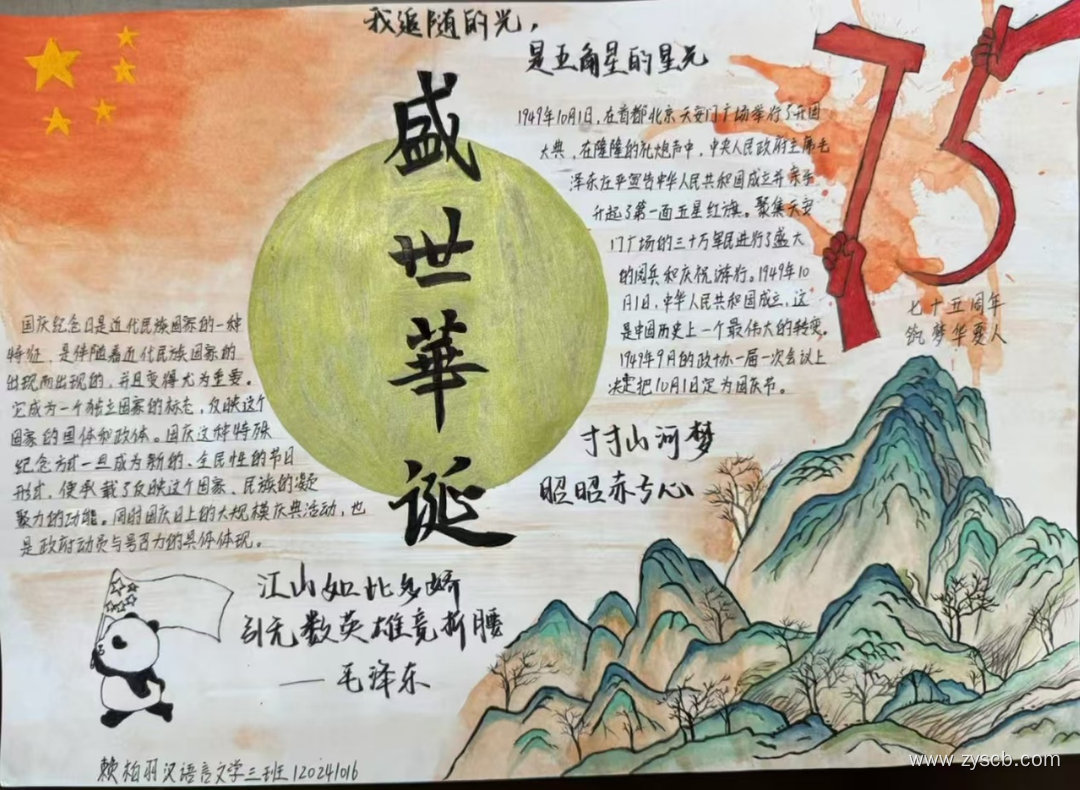 我追随的光，
是五角星的星光
盛世華诞
75
1949年10月1日，在首都北京天安门广场举行了开国
大典，在隆隆的礼炮声中，中央人民政府主席毛
泽东庄严宣告中华人民共和国成立并亲手
升起了第一面五星红旗。聚集天安
门广场的三十万军民进行了盛大
的阅兵和庆祝游行。1949年10
月1日，中华人民共和国成立，这
是中国历史上一个最伟大的转变。
1949年9月的政协一届一次会议上
决定把10月1日定为国庆节。
七十五周年
筑梦华夏人
国庆纪念日是近代民族国家的一种
特征，是伴随着近代民族国家的
出现而出现的，并且变得尤为重要。
它成为一个独立国家的标志，反映这个
国家的国体和政体。国庆这种特殊
纪念方式一旦成为新的、全民性的节日
形式，便承载了反映这个国家、民族的凝
聚力的功能。同时国庆日上的大规模庆典活动，也
是政府动员与号召力的具体体现。
寸寸山河梦
昭昭赤兮心
江山如此多娇
引无数英雄竞折腰
——毛泽东
赖柏羽汉语言文学三班120241016
www.zyscb.com